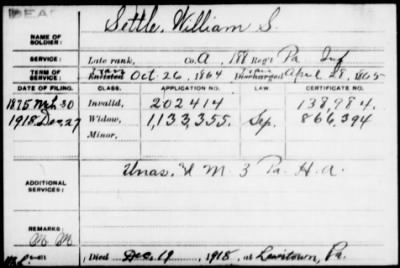 DEAD
Settle, William S.
NAME OF SOLDIER:
SERVICE: Late rank, Co. A, 188 Reg't Pa Inf
TERM OF SERVICE: Enlisted Oct. 26, 1864 Discharged April 28, 1865
DATE OF FILING. CLASS. APPLICATION NO. LAW CERTIFICATE NO.
1875 Mch 30 Invalid, 202414 138,984.
1918 Dec 27 Widow, 1,133,355. Sep. 866,394
Minor,
ADDITIONAL SERVICES: Unas. U M. 3 Pa. H. A.
REMARKS:
Died Dec. 19, 1918, at Lewistown, Pa.